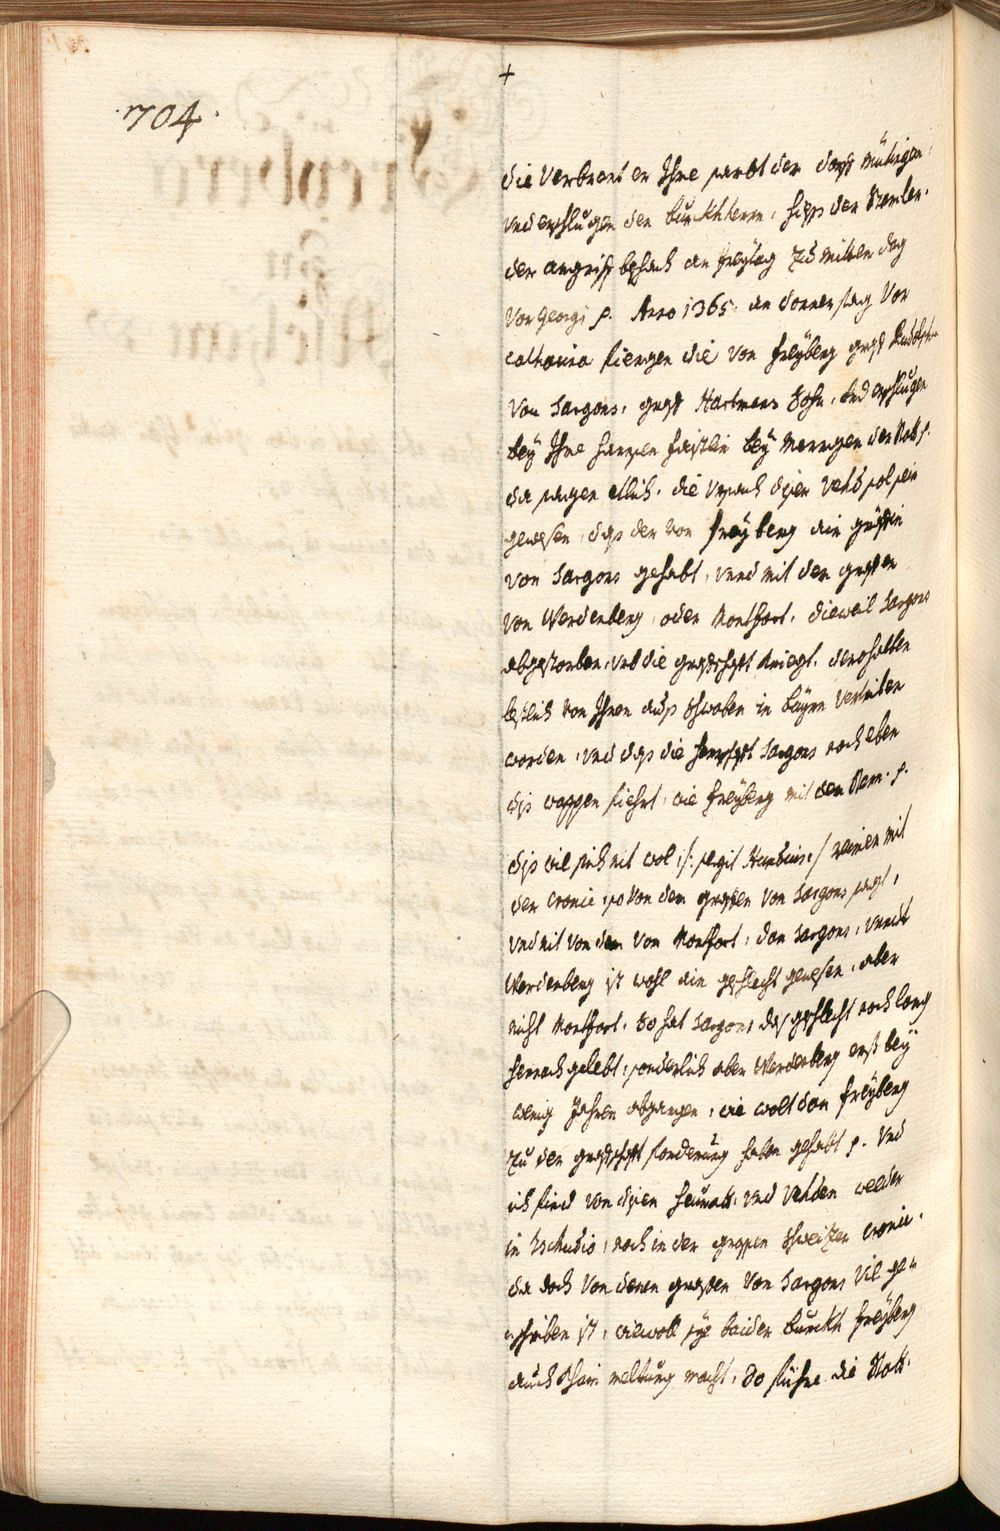 +
704.
die Verbrent er Ihme sambt dem dorff Mütigen,
vnd erschlugen den burckherrn, hiess der Stemler.
der angriff beschach an freytag zu mitten dag
vor Georgi p. Anno 1365. an donnerstag vor
catharina fiengen die von freyberg graff Rudolfen
von Sargans, graff Hartmans Sohn, vnd erschlugen
bey Ihme hannsen
da sagen etlich, die vrsach disen vehd soll sein
gewesen, dass der von freyberg ain gräffin
von Sargans gehabt, vnnd mit den graffen
von Werdenberg, oder Montfort, dieweil Sargans
abgestorben, vmb die graffschafft kriegt, derohalben
lestlich von Ihnen auss Schwaben in bayrn vertriben
worden, vnd dass die herrschafft Sargans noch eben
diss wappen fiehrt, wie freyberg mit den p.
diss wil sich nit wol /: :/ reimen mit
der cronic, so von den graffen von Sargans sagt,
vnd nit von den von Montfort, dan Sargans, vnnd
Werdenberg ist wohl ain geschlecht gewesen, aber
nicht Montfort. So hat Sargans das geschlecht noch lang
hernach gelebt, sonderlich aber Werdenberg erst bey
wenig Jahren abgangen, wie wolt dan freyberg
zu der graffschafft forderung haben gehabt p. Vnd
ich find von disen heurath, vnd vehden weeder
in Tschudio, noch in der grossen Schweitzer cronic,
da doch von denen graffen von Sargans vil ge=
schriben ist, wiewoll sye baider burckh freyberg
auch meldung macht, So führe die Statt